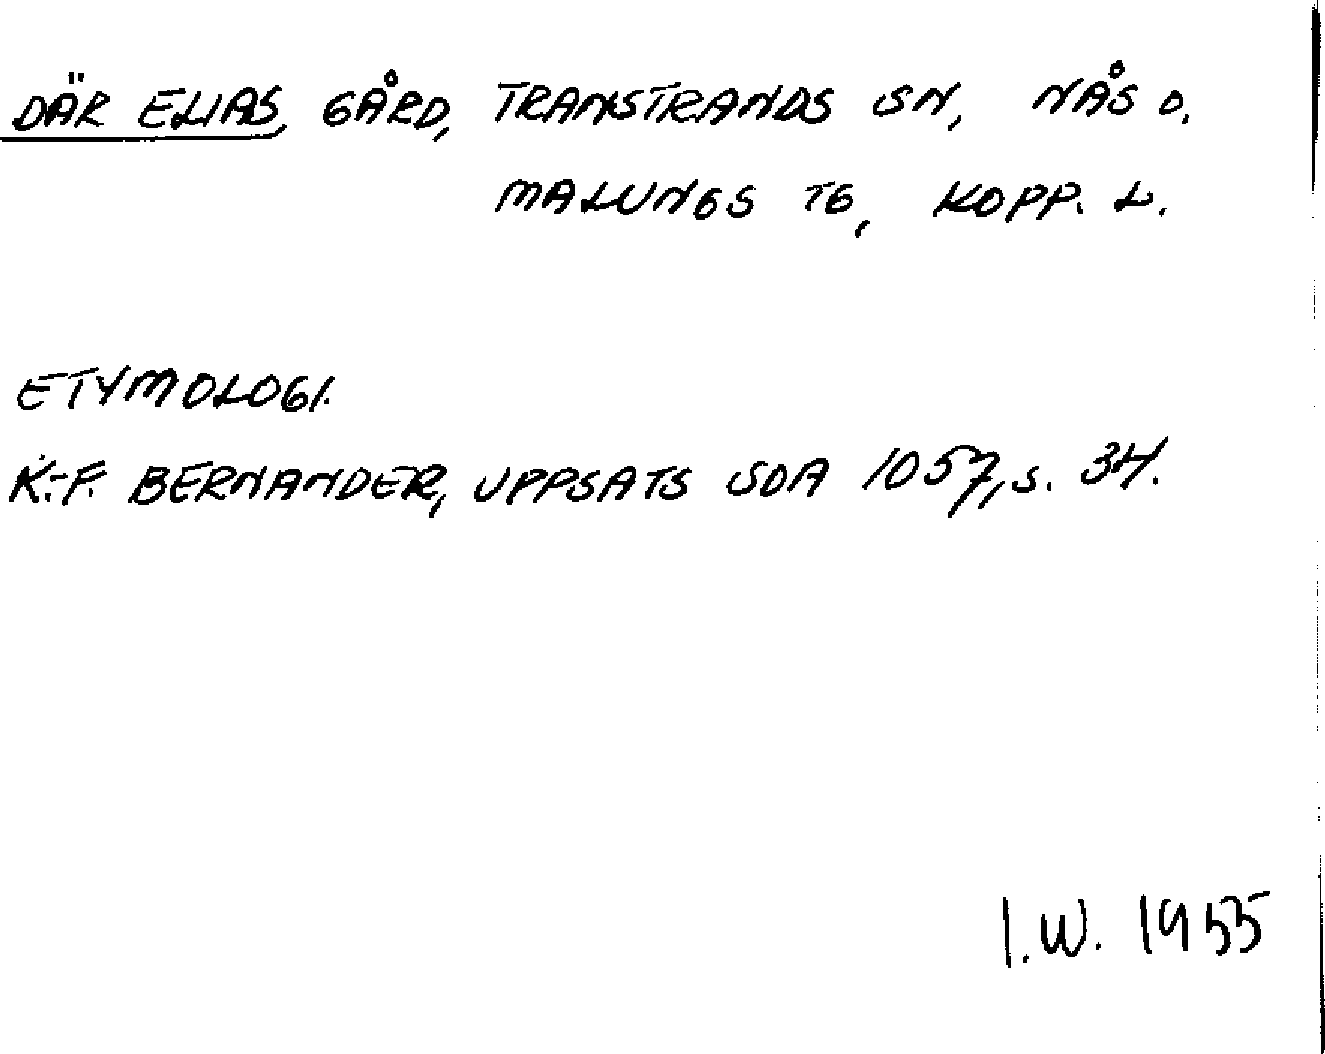 DÄR ELIAS, GÅRD, TRANSTRANDS SN, NÅS D.
MALUNGS TG, KOPP. L.
ETYMOLOGI.
K.-F. BERNANDER, UPPSATS SOA 1057, S. 34.
I.W. 1955